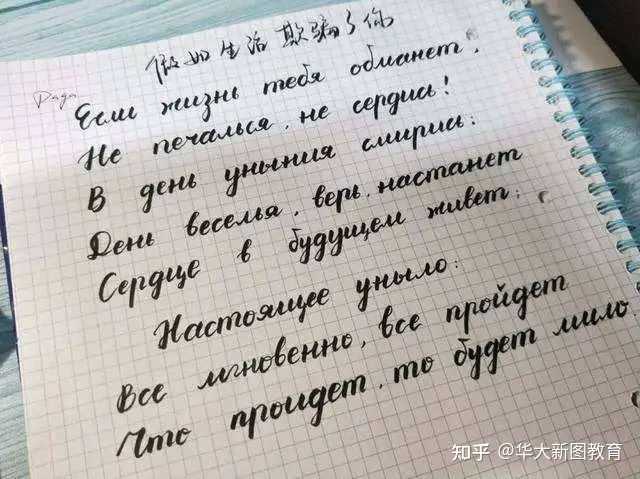 假如生活欺骗了你
Если жизнь тебя обманет,
Не печалься, не сердись!
В день уныния смирись:
День веселья, верь, настанет
Сердце в будущем живет;
Настоящее уныло:
Все мгновенно, все пройдет
Что пройдет, то будет мило.
知乎 @华大新图教育